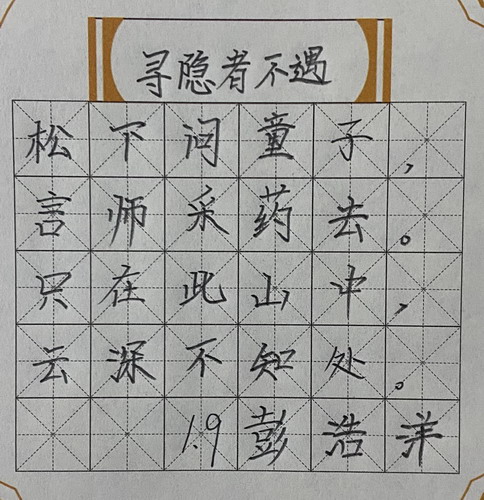 寻隐者不遇
松下问童子，
言师采药去。
只在此山中，
云深不知处。
1.9 彭浩洋